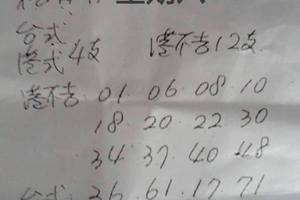 台式
港式4支 港不吉12支
港不吉·01·06·08·10
18·20·22·30
34·37·40·48
台式·36·61·17·71